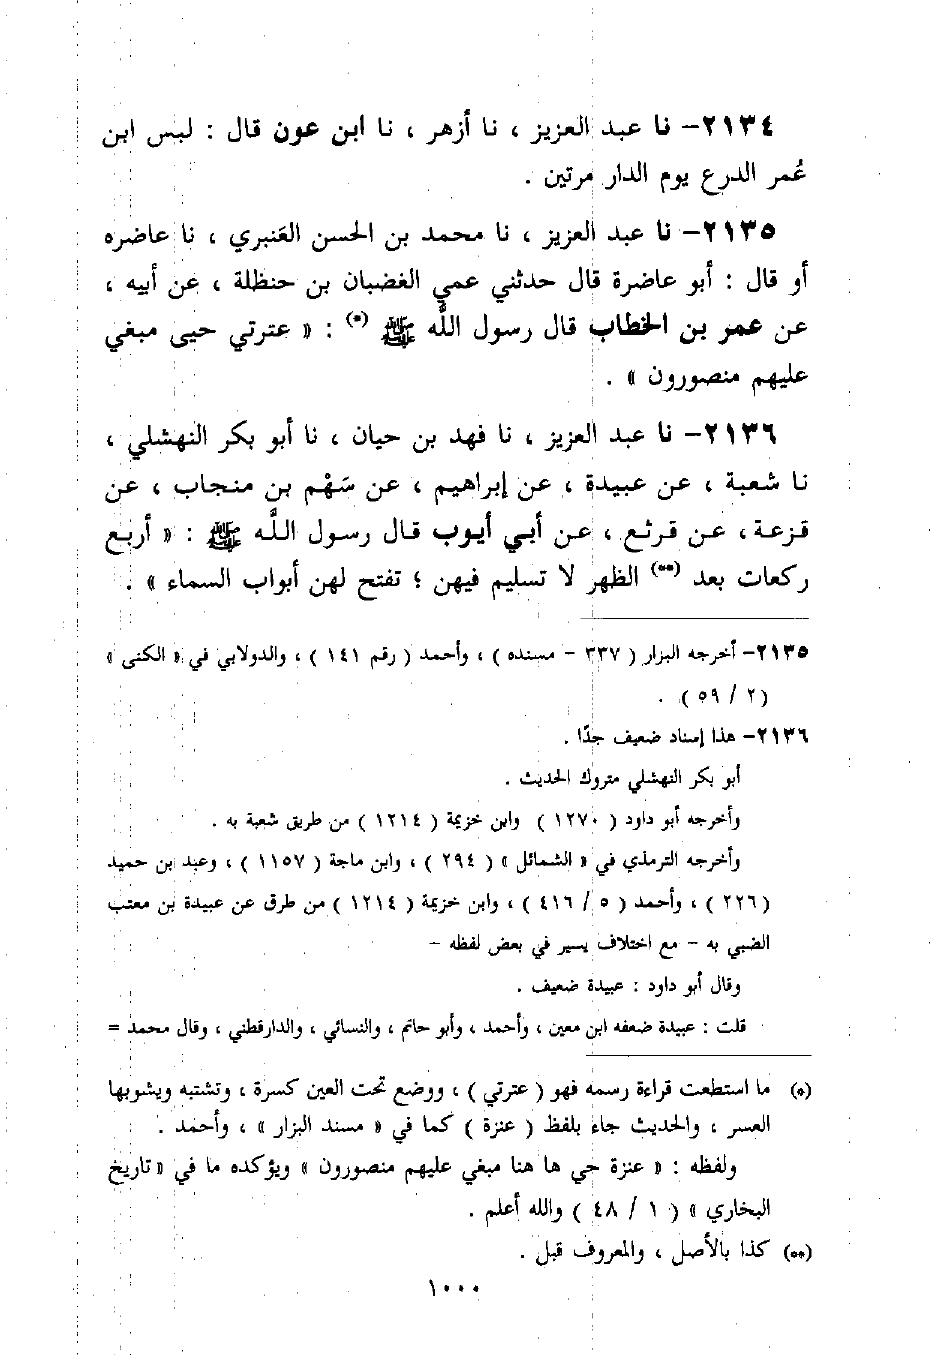 ٢١٣٤- نا عبد العزيز ، نا أزهر ، نا ابن عون قال : لبس ابن
عُمر الدرع يوم الدار مرتين .
٢١٣٥- نا عبد العزيز ، نا محمد بن الحسن العَنبري ، نا عاضره
أو قال : أبو عاضرة قال حدثني عمي الغضبان بن حنظلة ، عن أبيه ،
عن عمر بن الخطاب قال رسول اللَّه ﷺ (*) : « عترتي حيى مبغي
عليهم منصورون » .
٢١٣٦- نا عبد العزيز ، نا فهد بن حيان ، نا أبو بكر النهشلي ،
نا شعبة ، عن عبيدة ، عن إبراهيم ، عن سَهْم بن منجاب ، عن
قزعة ، عن قرثع ، عن أبي أيوب قال رسول اللَّه ﷺ : « أربع
ركعات بعد (**) الظهر لا تسليم فيهن ؛ تفتح لهن أبواب السماء » .
٢١٣٥- أخرجه البزار ( ٣٣٧ - مسنده ) ، وأحمد ( رقم ١٤١ ) ، والدولابي في « الكنى »
( ٢ / ٥٩ ) .
٢١٣٦- هذا إسناد ضعيف جدًا .
أبو بكر النهشلي متروك الحديث .
وأخرجه أبو داود ( ١٢٧٠ ) وابن خزيمة ( ١٢١٤ ) من طريق شعبة به .
وأخرجه الترمذي في « الشمائل » ( ٢٩٤ ) ، وابن ماجة ( ١١٥٧ ) ، وعبد بن حميد
( ٢٢٦ ) ، وأحمد ( ٥ / ٤١٦ ) ، وابن خزيمة ( ١٢١٤ ) من طرق عن عبيدة بن معتب
الضبي به - مع اختلاف يسير في بعض لفظه -
وقال أبو داود : عبيدة ضعيف .
قلت : عبيدة ضعفه ابن معين ، وأحمد ، وأبو حاتم ، والنسائي ، والدارقطني ، وقال محمد =
(*) ما استطعت قراءة رسمه فهو ( عترتي ) ، ووضع تحت العين كسرة ، وتشتبه ويشوبها
العسر ، والحديث جاء بلفظ ( عنزة ) كما في « مسند البزار » ، وأحمد .
ولفظه : « عنزة حي ها هنا مبغي عليهم منصورون » ويؤكده ما في « تاريخ
البخاري » ( ١ / ٤٨ ) والله أعلم .
(**) كذا بالأصل ، والمعروف قبل .
١٠٠٠